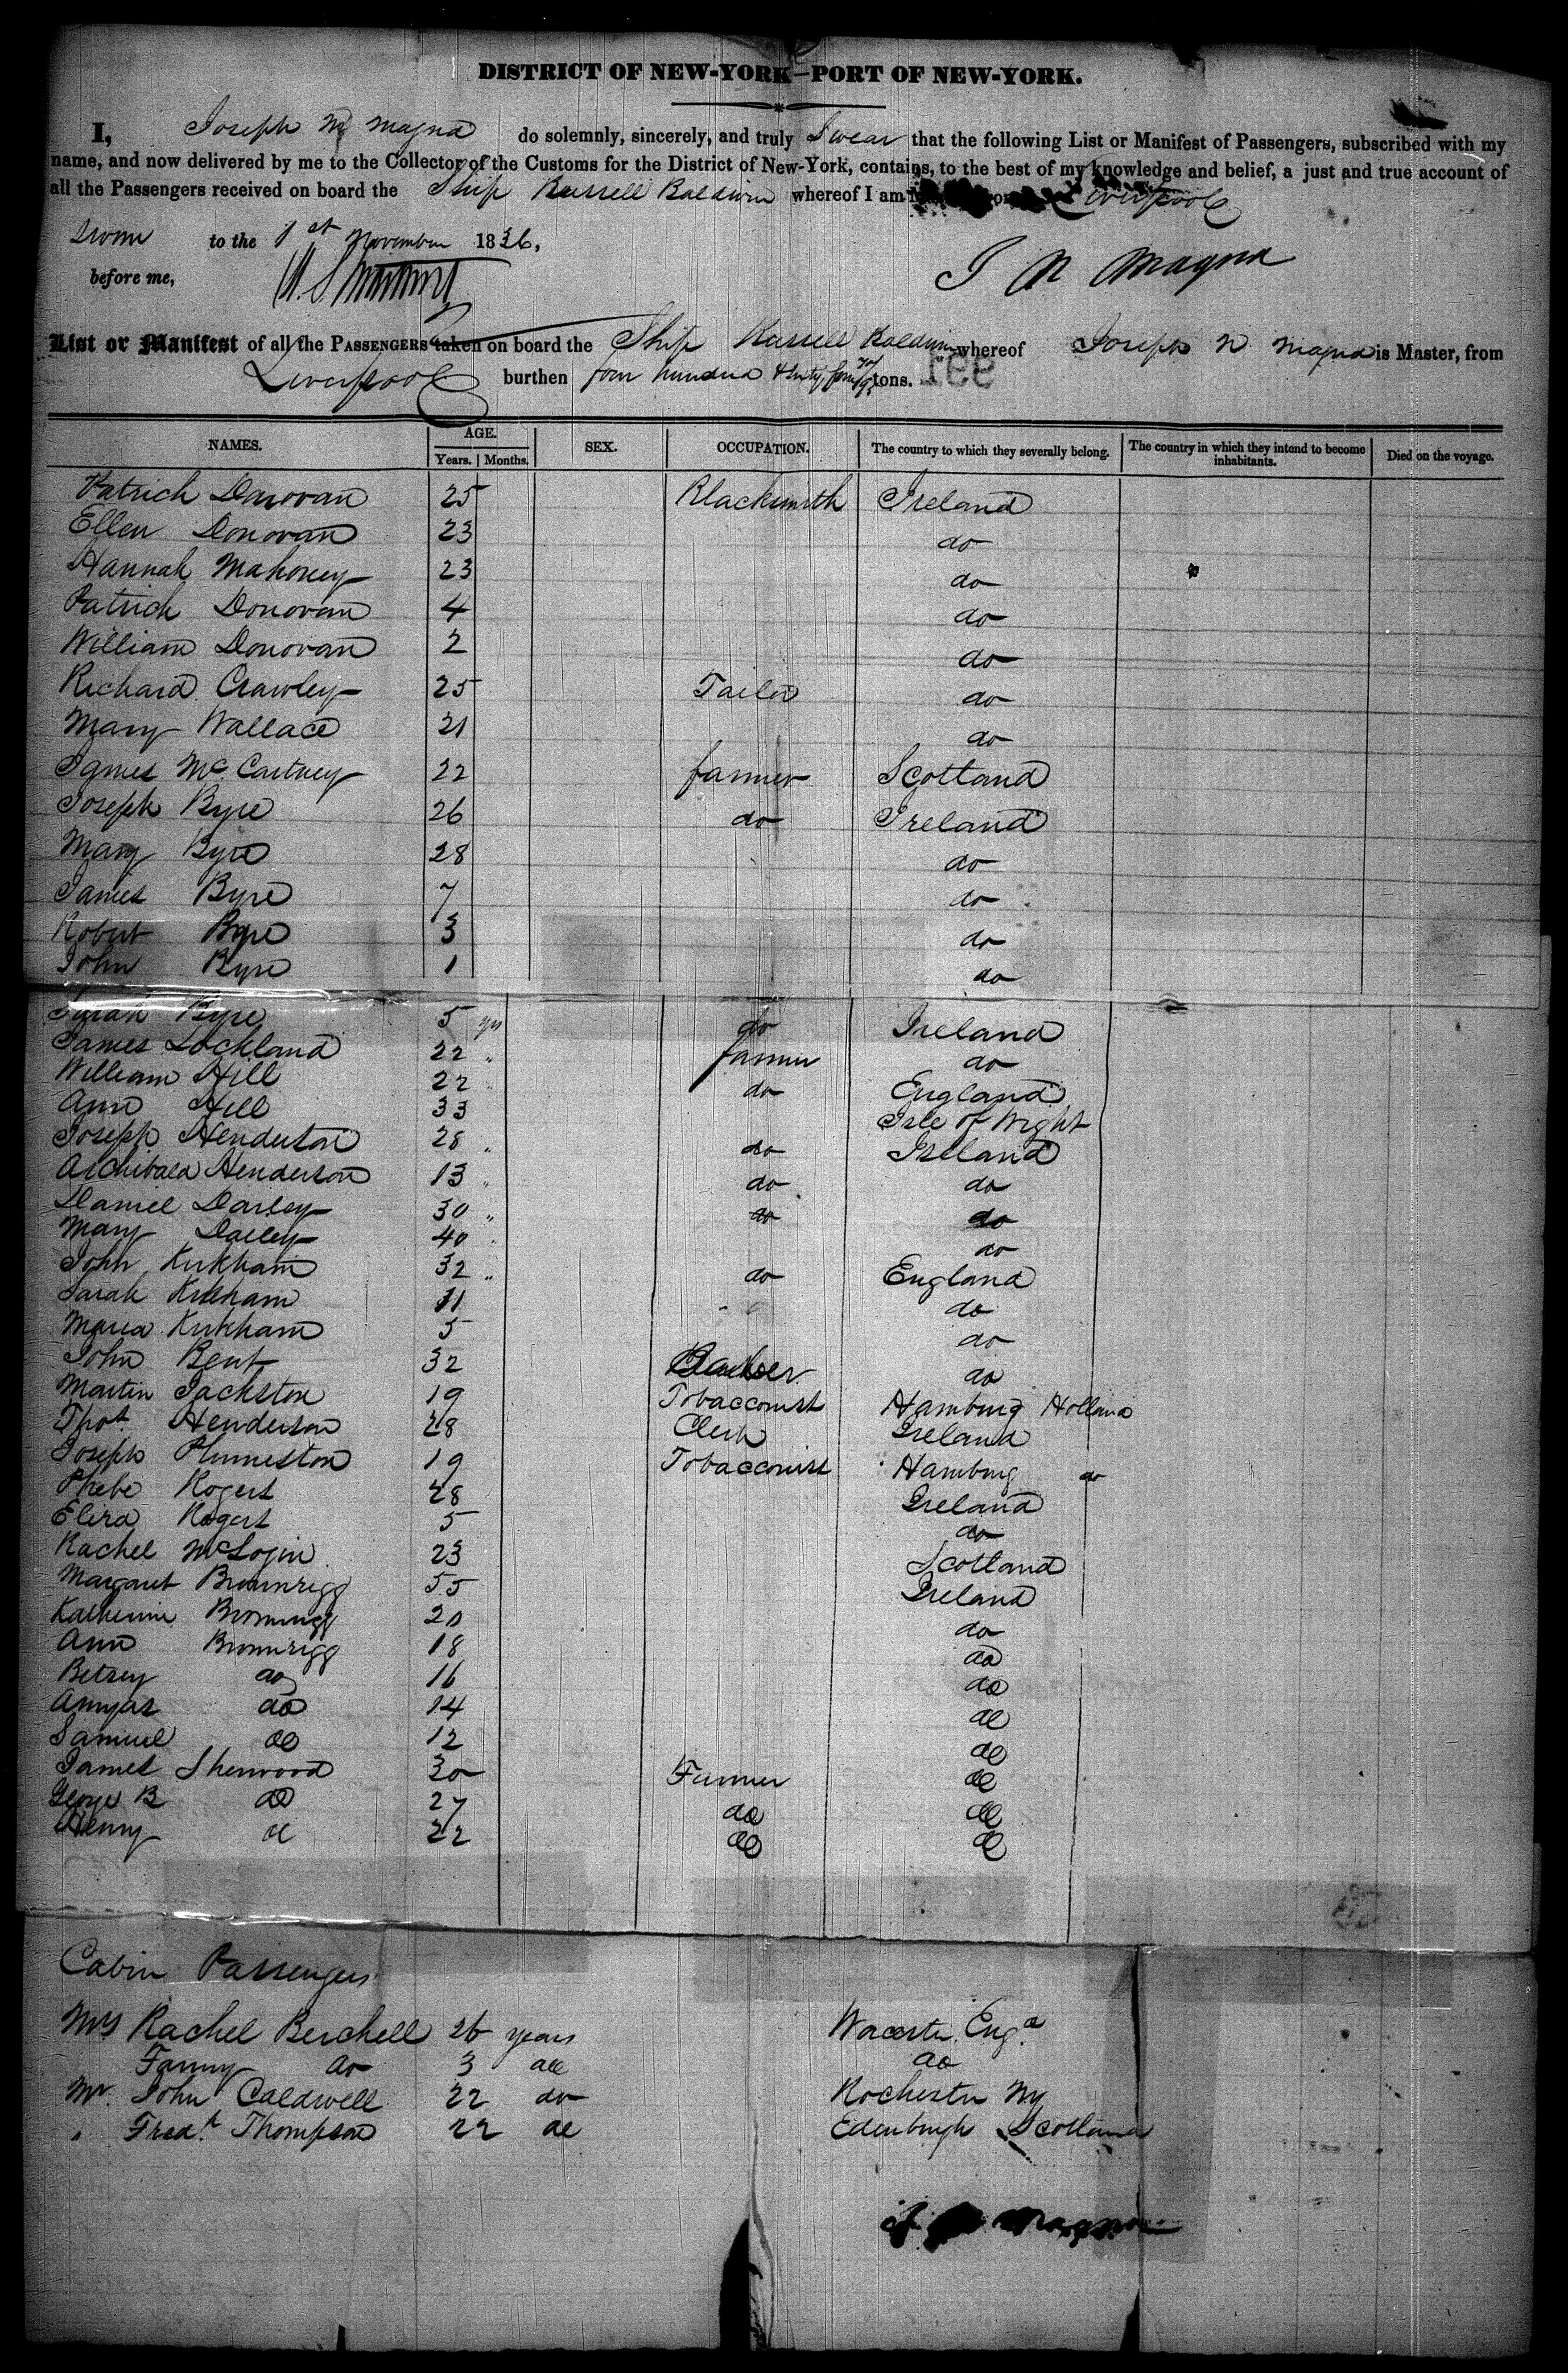 DISTRICT OF NEW-YORK—PORT OF NEW-YORK.
I, Joseph N Magna do solemnly, sincerely, and truly Swear that the following List or Manifest of Passengers, subscribed with my
name, and now delivered by me to the Collector of the Customs for the District of New-York, contains, to the best of my knowledge and belief, a just and true account of
all the Passengers received on board the Ship Russell Baldwin whereof I am from Liverpool
Sworn to the 1st November 1836,
J N Magna
before me,
List or Manifest of all the PASSENGERS taken on board the Ship Russell Baldwin whereof Joseph N Magna is Master, from
Liverpool burthen four hundred & thirty four tons.
NAMES. AGE. SEX. OCCUPATION. The country to which they severally belong. The country in which they intend to become inhabitants. Died on the voyage.
Years. Months.
Patrick Donovan 25 Blacksmith Ireland
Ellen Donovan 23 do
Hannah Mahoney 23 do
Patrick Donovan 4 do
William Donovan 2 do
Richard Crawley 25 Tailor do
Mary Wallace 21 do
James McCartney 22 farmer Scotland
Joseph Byre 26 do Ireland
Mary Byre 28 do
James Byre 7 do
Robert Byre 3 do
John Byre 1 do
Sarah Byre 5 yrs do Ireland
James Lockland 22 " farmer do
William Hill 22 " do England
Ann Hill 33 Isle of Wight
Joseph Henderson 28 " do Ireland
Archibald Henderson 13 " do do
Daniel Darley 30 " do do
Mary Dailey 40 " do
John Kirkham 32 " do England
Sarah Kirkham 31 do
Maria Kirkham 5 do
John Bent 32 do
Martin Jackston 19 Tobacconist Hamburg Holland
Thos. Henderson 28 Clerk Ireland
Joseph Plumeston 19 Tobacconist Hamburg do
Phebe Rogers 28 Ireland
Eliza Rogers 5 do
Rachel McLogin 23 Scotland
Margaret Brownrigg 55 Ireland
Katherine Brownrigg 20 do
Ann Brownrigg 18 do
Betsey do 16 do
Amyas do 14 do
Samuel do 12 do
James Sherwood 30 Farmer do
George B do 27 do do
Henry do 22 do do
Cabin Passengers
Mrs Rachel Berchell 26 years Worcester Engd
Fanny do 3 do do
Mr. John Caldwell 22 do Rochester NY
" Fredk. Thompson 22 do Edenburgh Scotland